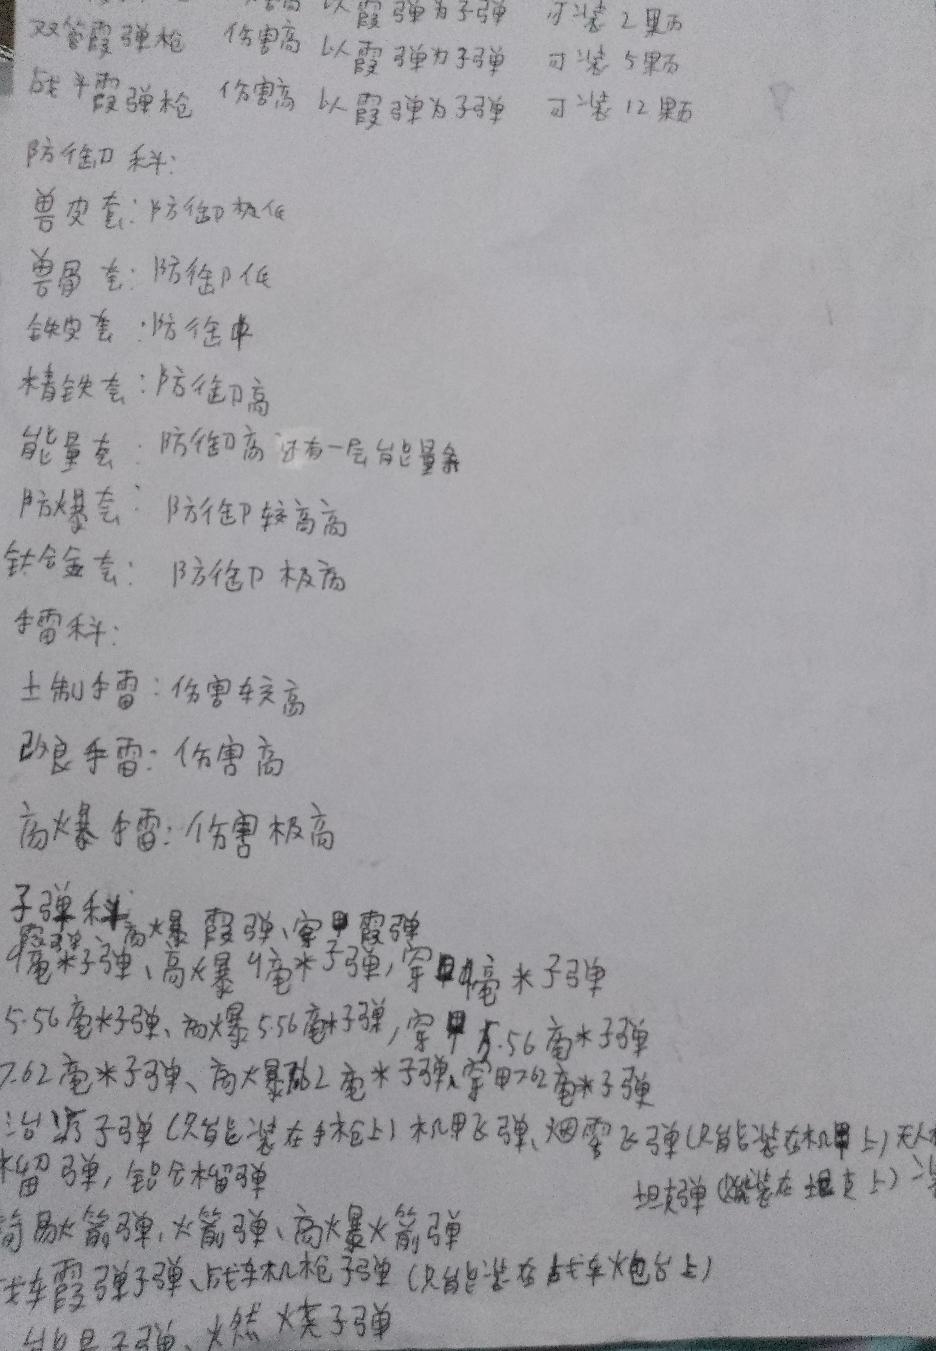 伤害高 以霞弹为子弹 可装2颗
双管霞弹枪 伤害高 以霞弹为子弹 可装5颗
战斗霞弹枪 伤害高 以霞弹为子弹 可装12颗
防御科:
兽皮套:防御极低
兽骨套:防御低
铁皮套:防御中
精铁套:防御高
能量套:防御高还有一层能量
防爆套:防御较高高
钛合金套:防御极高
手雷科:
土制手雷:伤害较高
改良手雷:伤害高
高爆手雷:伤害极高
子弹科
霞弹、高爆霞弹、穿甲霞弹
9毫米子弹、高爆9毫米子弹,穿甲9毫米子弹
5.56毫米子弹、高爆5.56毫米子弹,穿甲5.56毫米子弹
7.62毫米子弹、高爆7.62毫米子弹、穿甲7.62毫米子弹
治疗子弹(只能装在手枪上)机甲飞弹、烟雾飞弹(只能装在机甲上)无人
榴弹,铝合榴弹 坦克弹(只能装在坦克上)
简易火箭弹,火箭弹、高爆火箭弹
战车霞弹子弹、战车机枪子弹(只能装在战车炮台上)
能量子弹、燃烧子弹